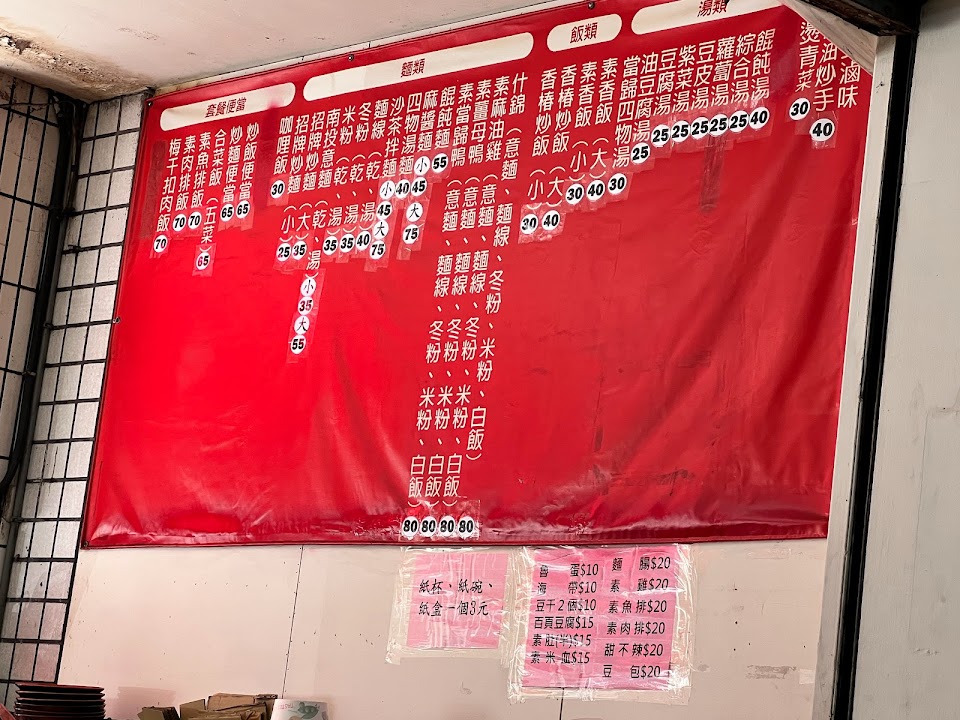 套餐便當
梅干扣肉飯 70
素肉排飯 70
素魚排飯 70
合菜飯(五菜) 65
炒麵便當 65
炒飯便當 65
麵類
咖哩飯 30
招牌炒麵(小) 25
招牌炒麵(大) 35
南投意麵(乾、湯) 小 35 大 55
米粉(乾、湯) 35
冬粉(乾、湯) 35
麵線(乾、湯) 40
沙茶拌麵 小 45 大 75
四物湯麵 40
麻醬麵 小 45 大 75
餛飩麵 55
素當歸鴨(意麵、麵線、冬粉、米粉、白飯) 80
素薑母鴨(意麵、麵線、冬粉、米粉、白飯) 80
素麻油雞(意麵、麵線、冬粉、米粉、白飯) 80
什錦(意麵、麵線、冬粉、米粉、白飯) 80
飯類
香椿炒飯(小) 30
香椿炒飯(大) 40
素香飯(小) 30
素香飯(大) 40
湯類
當歸四物湯 30
油豆腐湯 25
豆腐湯 25
紫菜湯 25
豆皮湯 25
蘿蔔湯 25
綜合湯 25
餛飩湯 40
燙青菜 30
油炒手 40
滷味
紙杯、紙碗、
紙盒一個3元
魯 蛋$10
海 帶$10
豆干2個$10
百頁豆腐$15
素肚(半)$15
素米血$15
麵 腸$20
素 雞$20
素魚排$20
素肉排$20
甜不辣$20
豆 包$20